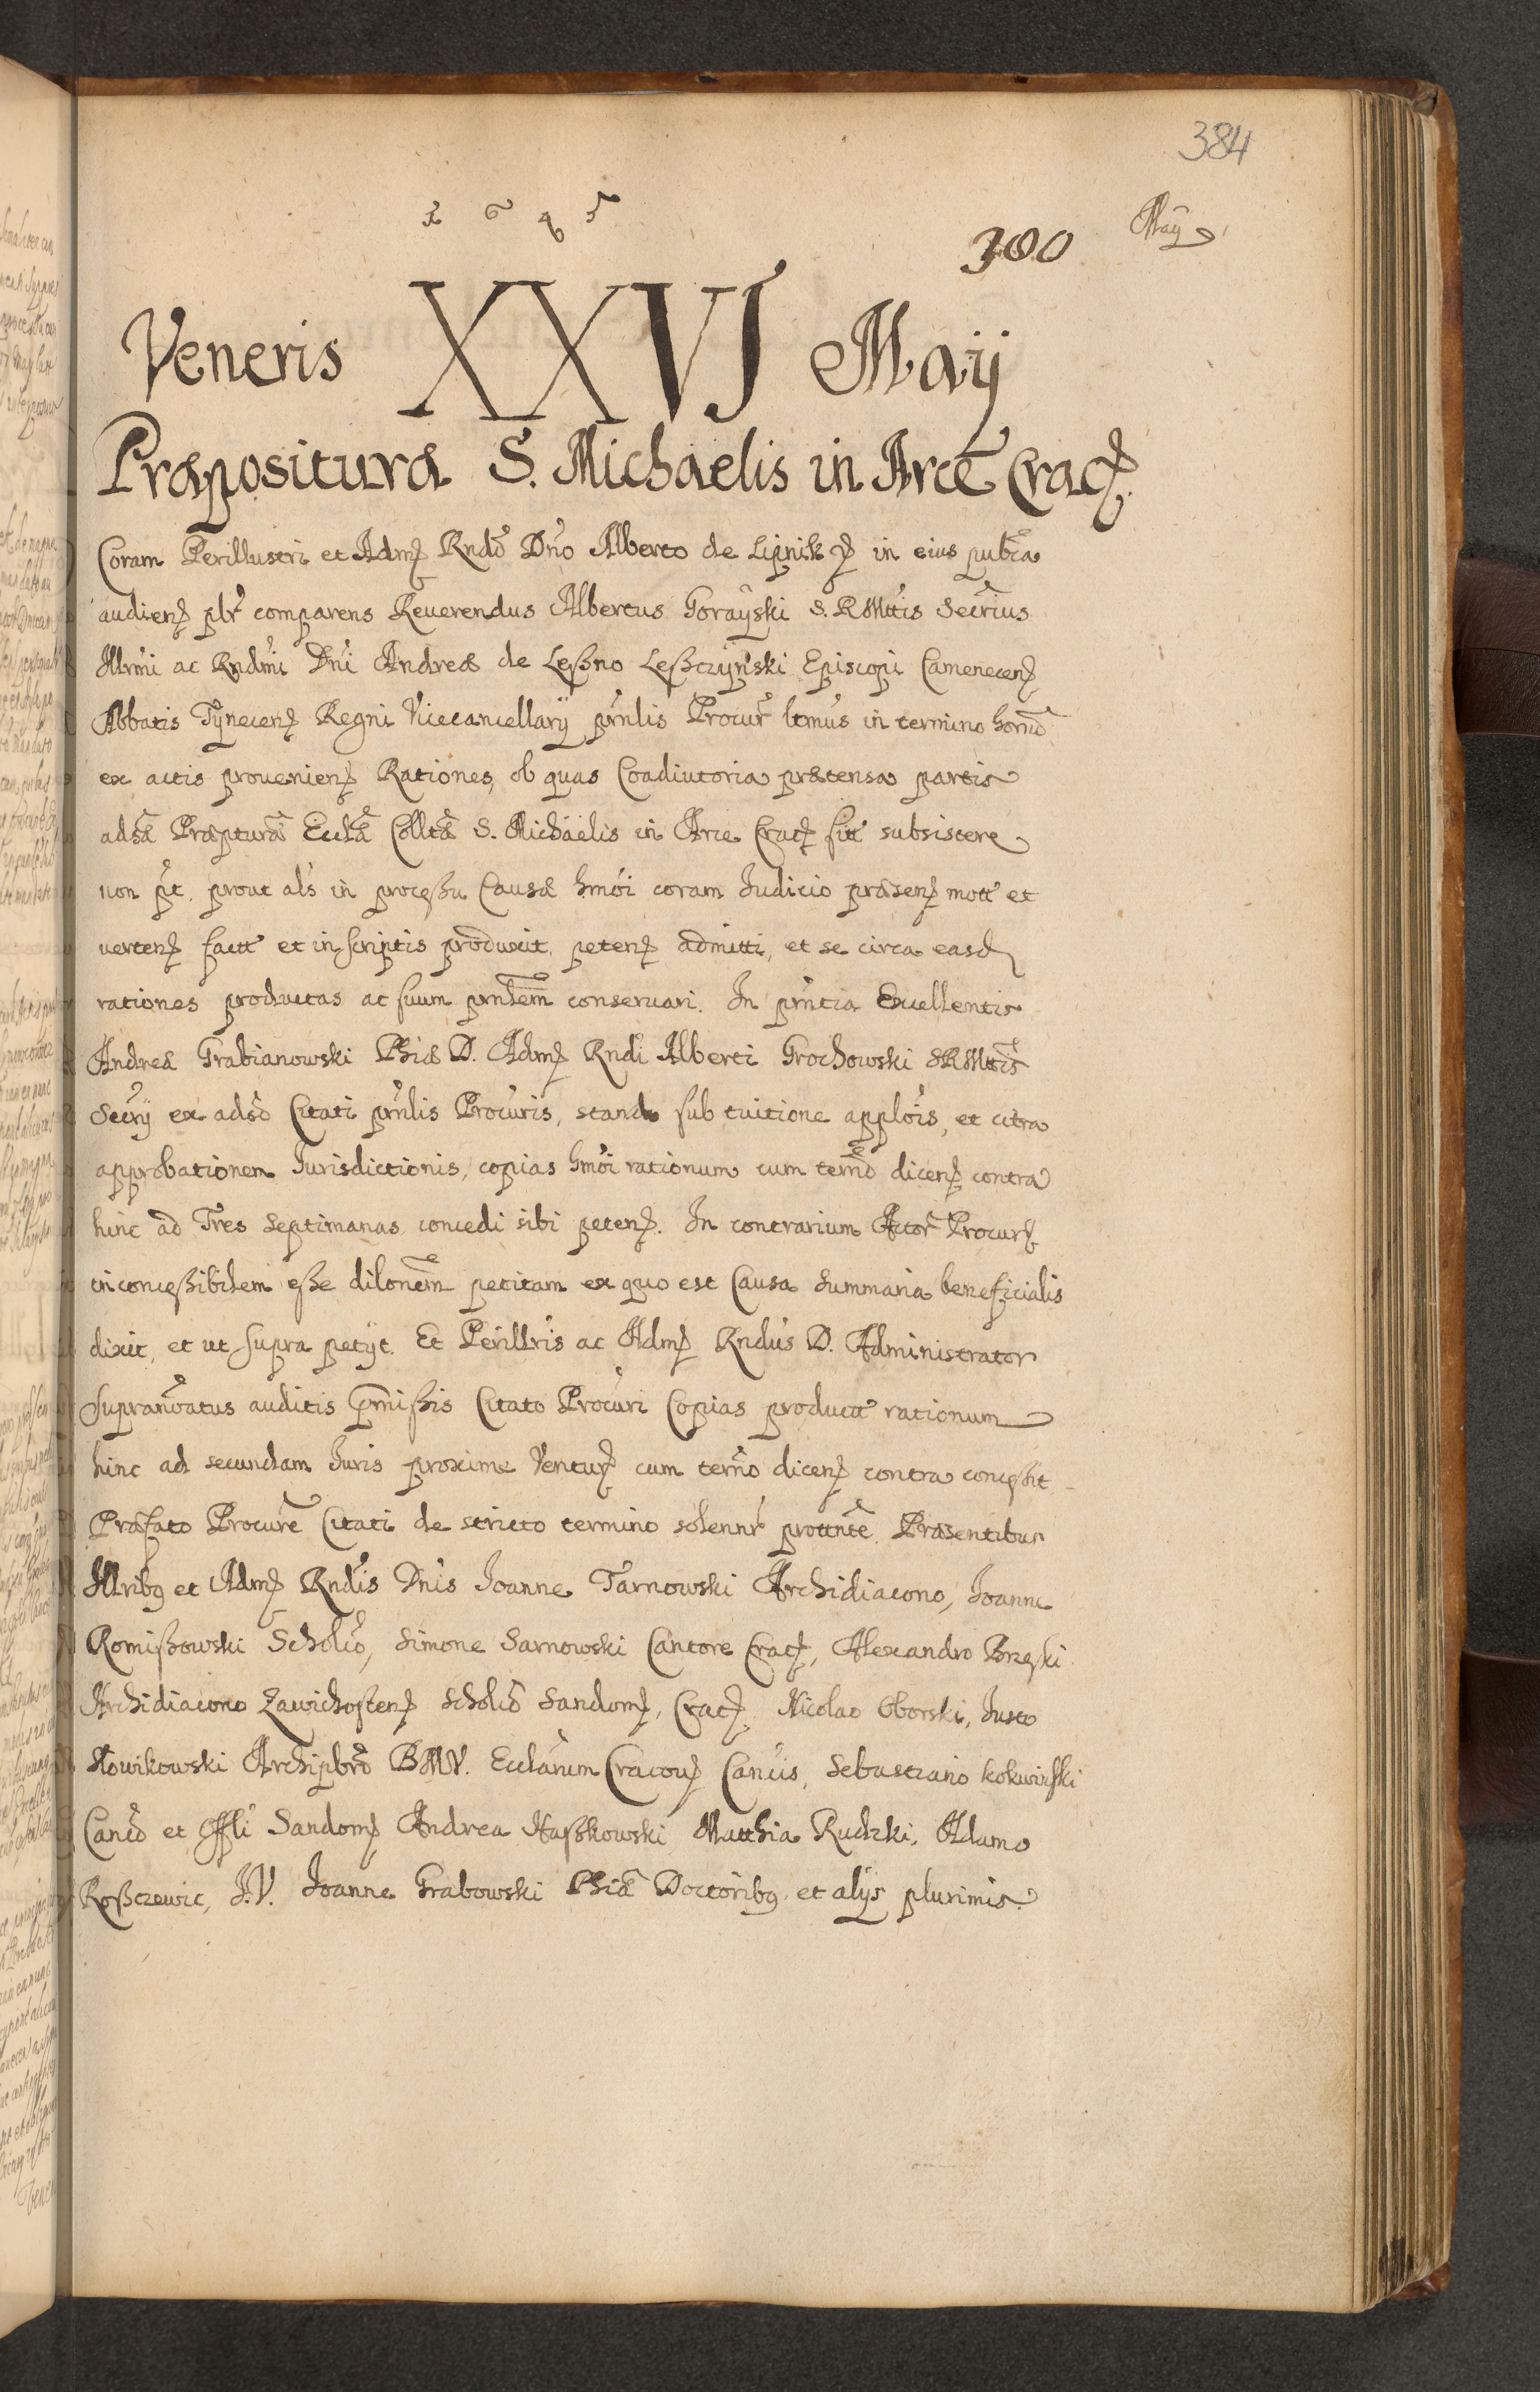 384
1645
300 May
Veneris XXVJ Maij
Præpositura S. Michaelis in Arce Crac
Coram Perillustri et Adm Rndo Dno Alberto de Lipnik in eius publca
audien plr comparens Reverendus Albertus Gorayski S. R Mttis Secrius
Illrmi ac Rndmi Dni Andreæ de Leßno Leßczyński Episcopi Camenecen
Abbatis Tynecen Regni Vicecancellarij prnlis Procur ltmus in termino horno
ex actis provenien Rationes, ob quas Coadiutoria prætensa partis
adsæ Præpturæ Ecclæ Colltæ S. Michaelis in Arce Crac sitt subsistere
non pt, prout als in processu Causæ hmoi coram Iudicio præsen mott et
verten factt et in scriptis produxit, peten admitti, et se circa easd
rationes productas ac suum prnlem conservari. In prntia Excellentis
Andreæ Grabianowski Phiæ D. Adm Rndi Alberti Grochowski SRMttis
Secrij ex adso Citati prnlis Procuris, stando sub tuitione applois, et citra
approbationem Iurisdictionis, copias hmoi rationum cum terno dicen contra
hinc ad Tres septimanas concedi sibi peten. In contrarium Actor Procur
inconcessibilem esse dilonem petitam ex quo est Causa summaria beneficialis
dixit, et ut supra petijt. Et Perillris ac Adm Rndus D. Administrator
supranoatus auditis pmissis Citato Procuri Copias productt rationum
hinc ad secundam Iuris proxime Ventur cum terno dicen contra concessit
Præfato Procure Citati de stricto termino solennr prottnte. Præsentibus
Illribg et Adm Rndis Dnis Joanne Tarnowski Archidiacono, Joanne
Romißowski Scholco, Simone Sarnowski Cantore Crac, Alexandro Brzeski
Archidiacono Zawichosten Scholco Sandom, Crac, Nicolao Oborski, Justo
Slowikowski Archipbro BMV. Ecclarum Cracov Cancis, Sebastiano Kokwiński
Canco et Offli Sandom Andrea Kaßkowski Matthia Rudzki, Adamo
Roßczewic, J.V. Joanne Grabowski Phiæ Doctoribg et alijs plurimis